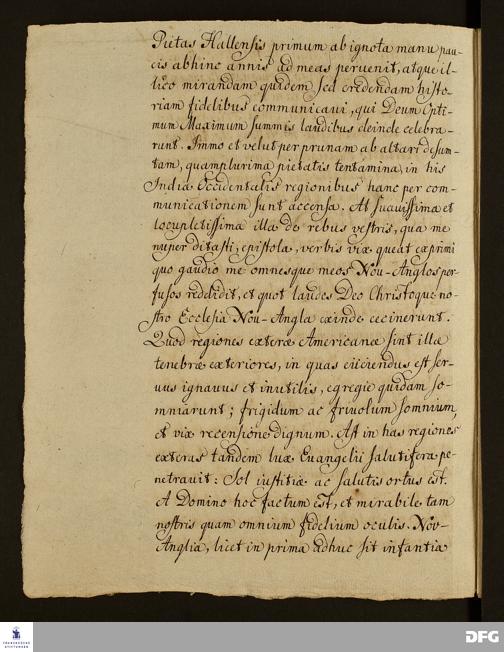 Pietas Hallensis primum ab ignota manu pau-
cis abhinc annis ad meas peruenit, atque il-
lico mirandam quidem sed credendam histo-
riam fidelibus communicaui, qui Deum Opti-
mum Maximum summis laudibus deinde celebra-
runt. Immo et velut per prunam ab altari desum-
tam, quamplurima pietatis tentamina, in his
Indiæ Occidentalis regionibus hanc per com-
municationem sunt accensa. At suauissima et
locupletissima illa de rebus vestris, qua me
nuper ditasti, epistola, verbis vix queat exprimi
quo gaudio me omnesque meos Nov-Anglos per-
fusos reddidit, et quot laudes Deo Christoque no-
stro Ecclesia Nov-Angla exinde cecinerunt.
Quod regiones exteræ Americanæ sint illæ
tenebræ exteriores, in quas eiiciendus est ser-
uus ignauus et inutilis, egregie quidam so-
mniarunt; frigidum ac friuolum somnium,
et vix recensione dignum. Ast in has regiones
exteras tandem lux Euangelii salutifera pe-
netrauit: Sol iustitiæ ac salutis ortus est.
A Domino hoc factum est, et mirabile tam
nostris quam omnium fidelium oculis. Nov-
Anglia, licet in prima adhuc sit infantia
FRANCKESCHE
STIFTUNGEN
DFG